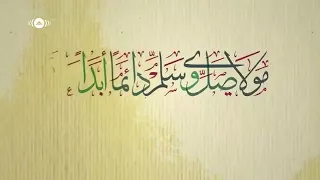 مولاي صل وسلم دائماً أبداً